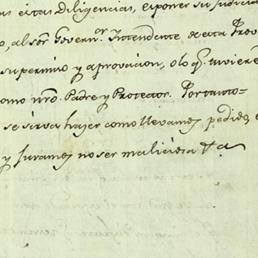 as estas diligencias, exponer su judicia
o, al Sor. Govern.or Intendente de esta Prov
superinio y aprovacion, olo q.e tuviere
omo nro. Padre y Protector. Portanto-
se sirva hazer como llevamos pedido, e
y Juramos no ser de malicia Va